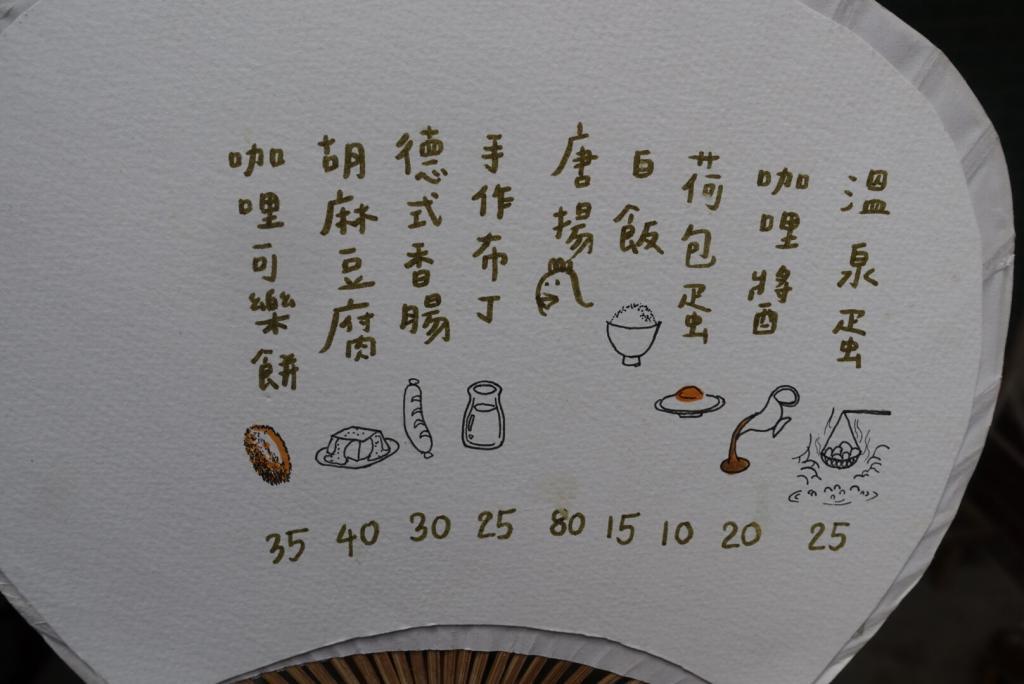 溫泉蛋
咖哩醬
荷包蛋
白飯
唐揚
手作布丁
德式香腸
胡麻豆腐
咖哩可樂餅
35 40 30 25 80 15 10 20 25